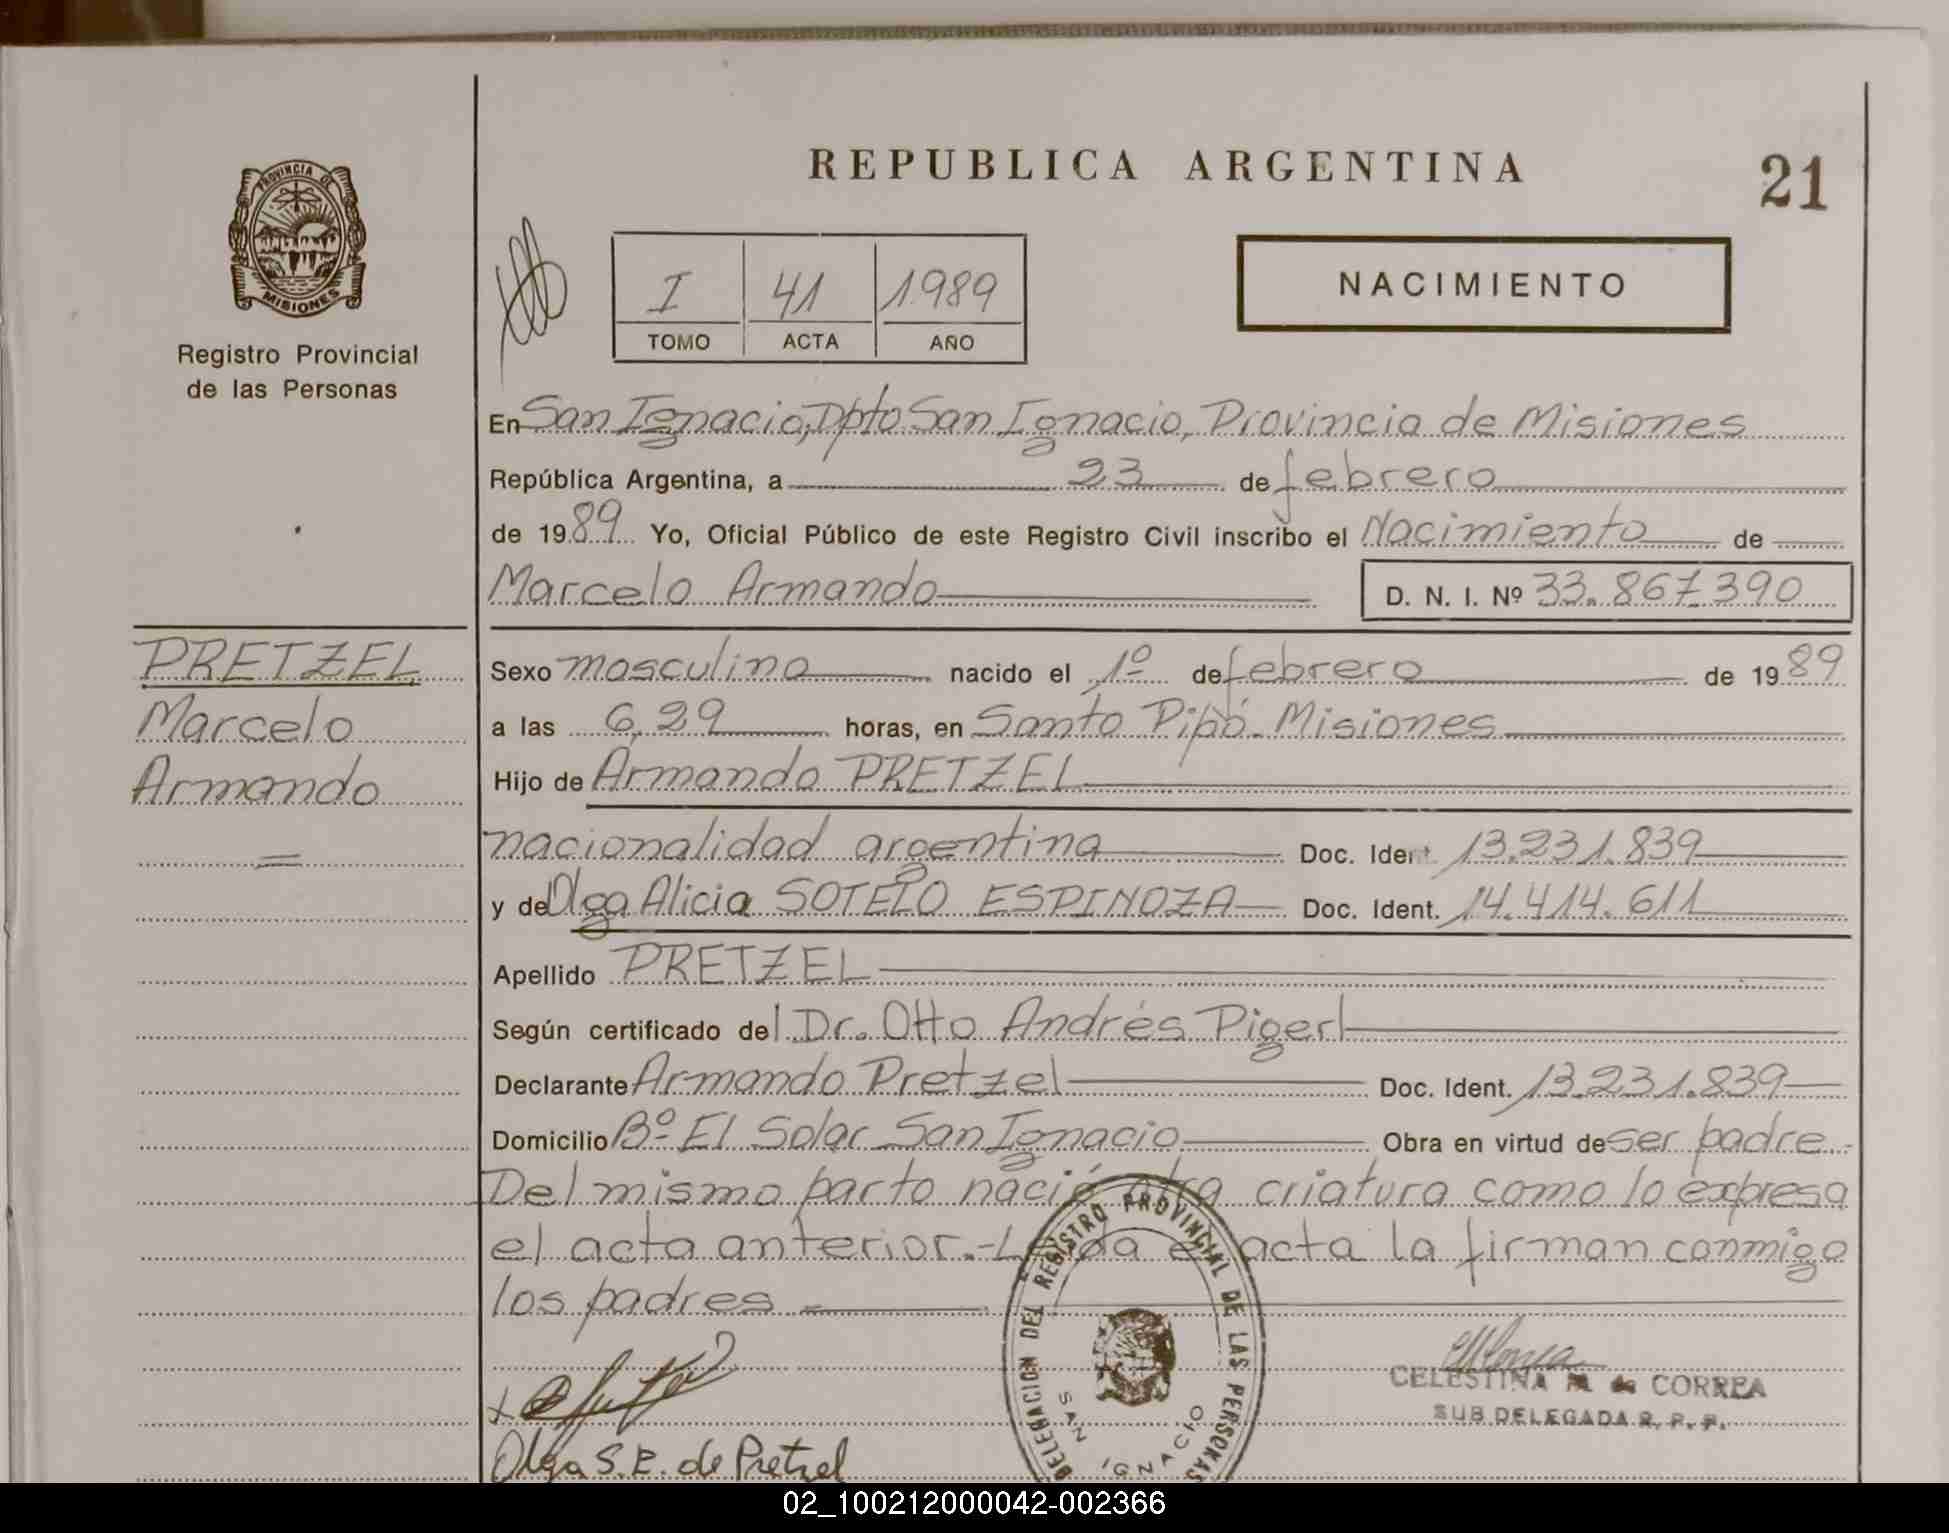 REPUBLICA ARGENTINA
21
PROVINCIA DE
MISIONES
Registro Provincial
de las Personas
I 41 1989
TOMO ACTA AÑO
NACIMIENTO
En San Ignacio, Dpto San Ignacio, Provincia de Misiones
República Argentina, a 23 de febrero
de 1989 Yo, Oficial Público de este Registro Civil inscribo el Nacimiento de
Marcelo Armando D. N. I. Nº 33.867.390
PRETZEL
Marcelo
Armando
Sexo masculino nacido el 1º de febrero de 1989
a las 6,29 horas, en Santo Pipó. Misiones
Hijo de Armando PRETZEL
nacionalidad argentina Doc. Ident. 13.231.839
y de Olga Alicia SOTELO ESPINOZA Doc. Ident. 14.414.611
Apellido PRETZEL
Según certificado del Dr. Otto Andrés Pigerl
Declarante Armando Pretzel Doc. Ident. 13.231.839
Domicilio Bº El Solar San Ignacio Obra en virtud de ser padre.-
Del mismo parto nació otra criatura como lo expresa
el acta anterior.- Leída el acta la firman conmigo
los padres
DELEGACION DEL REGISTRO PROVINCIAL DE LAS PERSONAS
SAN IGNACIO
CELESTINA M. de CORREA
SUB DELEGADA R. P. P.
Olga S.E. de Pretzel
02_100212000042-002366